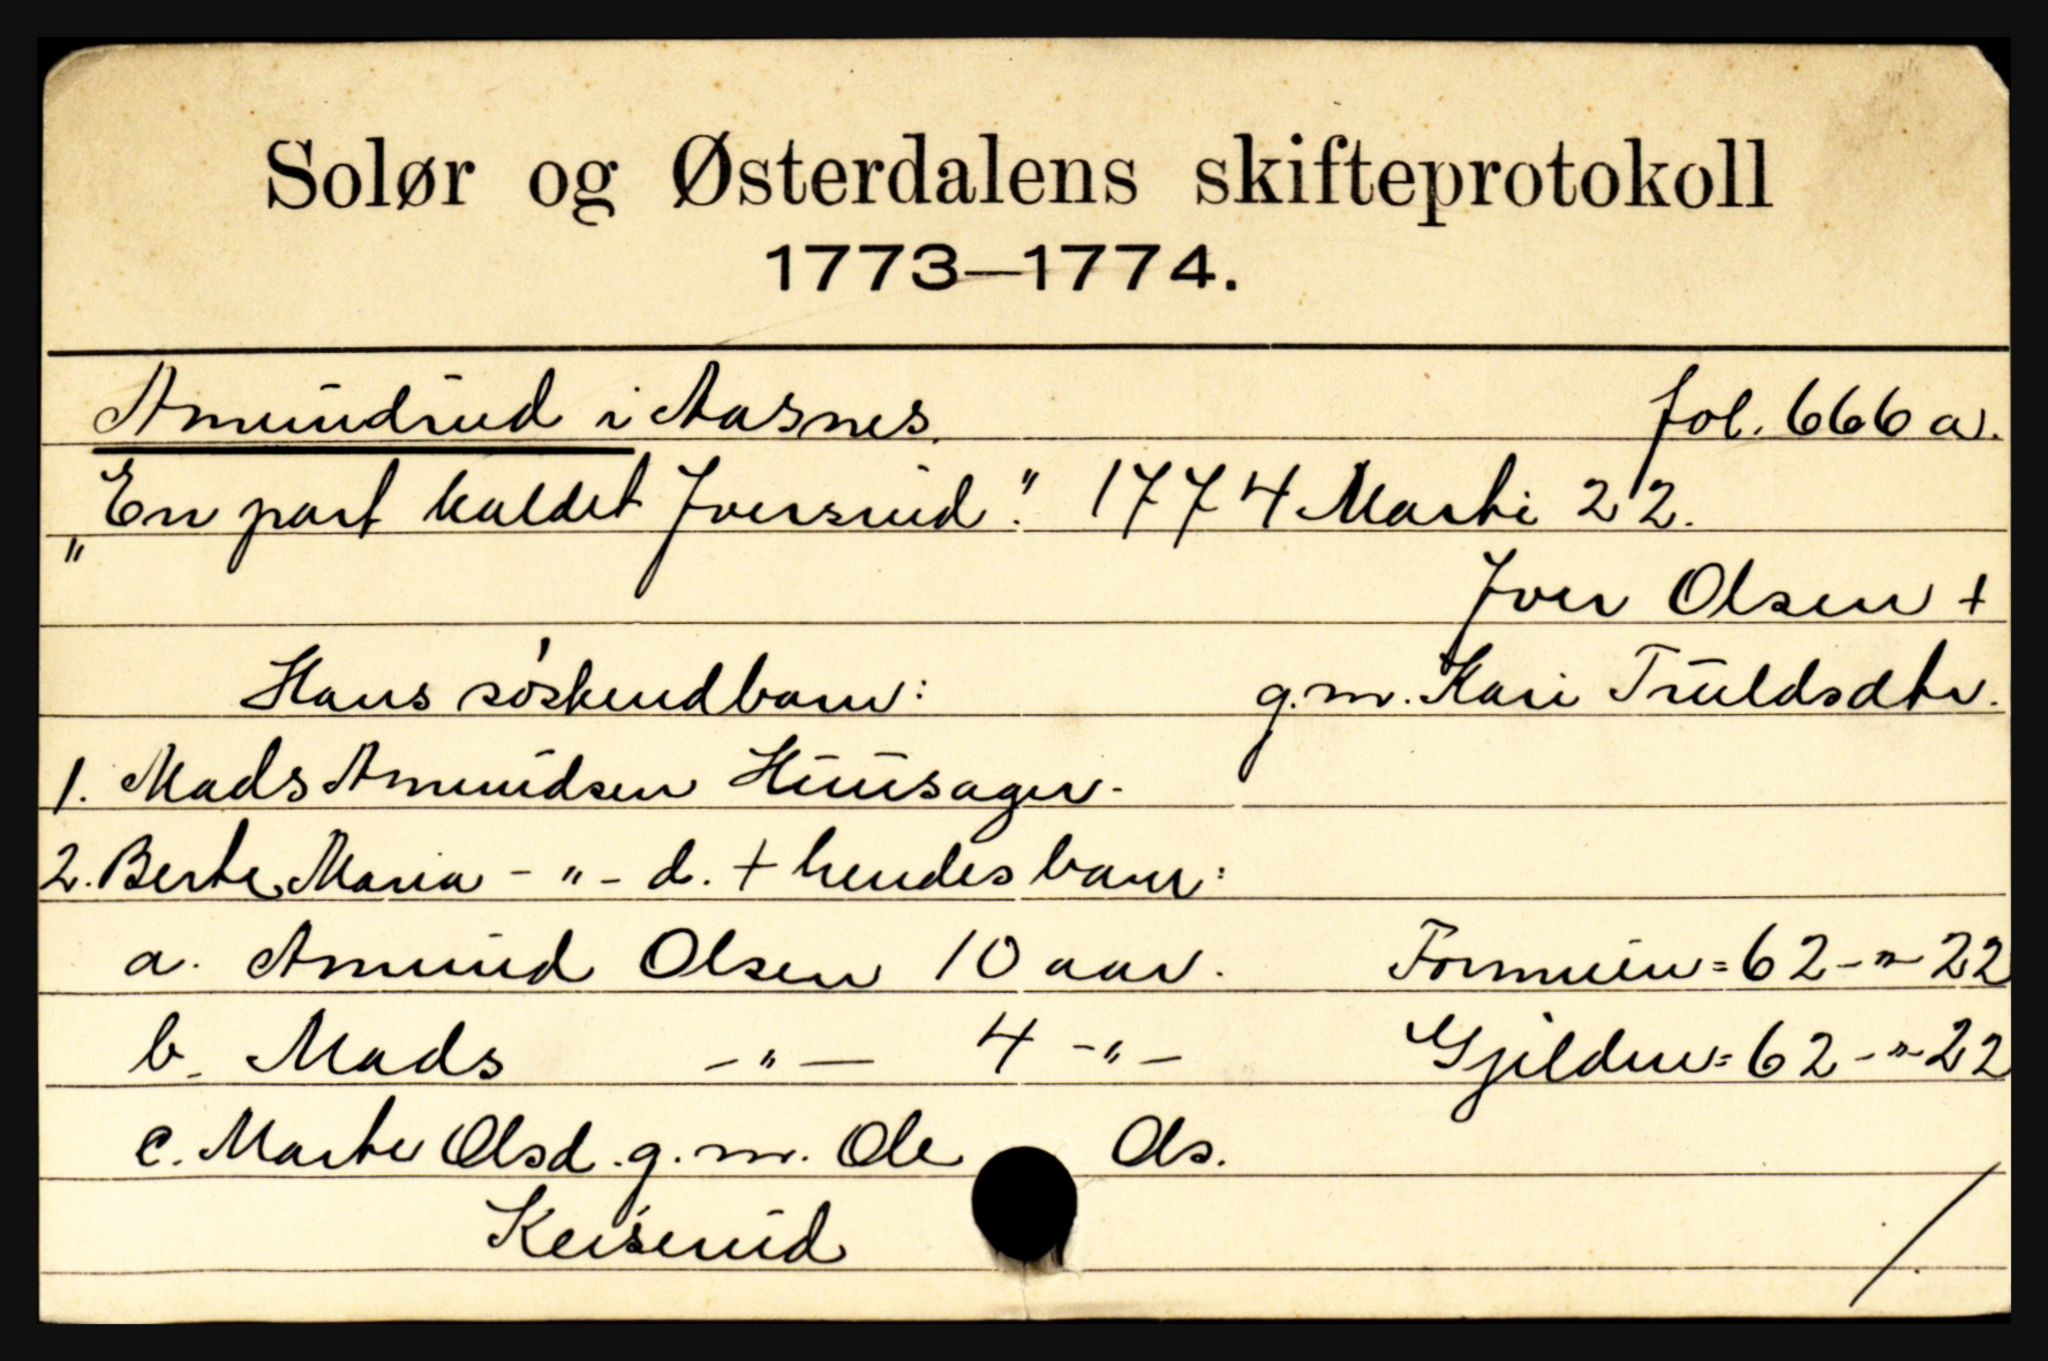 Solør og Østerdalens skifteprotokoll
1773—1774.
Amundrud i Aasnes. fol. 666 a.
"En part kaldet Iversrud." 1774 Marti 22.
Iver Olsen +
Hans søskendbarn: g.m. Kari Truldsdtr.
1. Mads Amundsen Huusager.
2. Berte Maria - " - d. + hendes barn:
a. Amund Olsen 10 aar. Formuen = 62 - " - 22
b. Mads - " - 4 - " - Gjelden = 62 - " - 22
c. Marte Olsd. g.m. Ole Os.
Keiserud